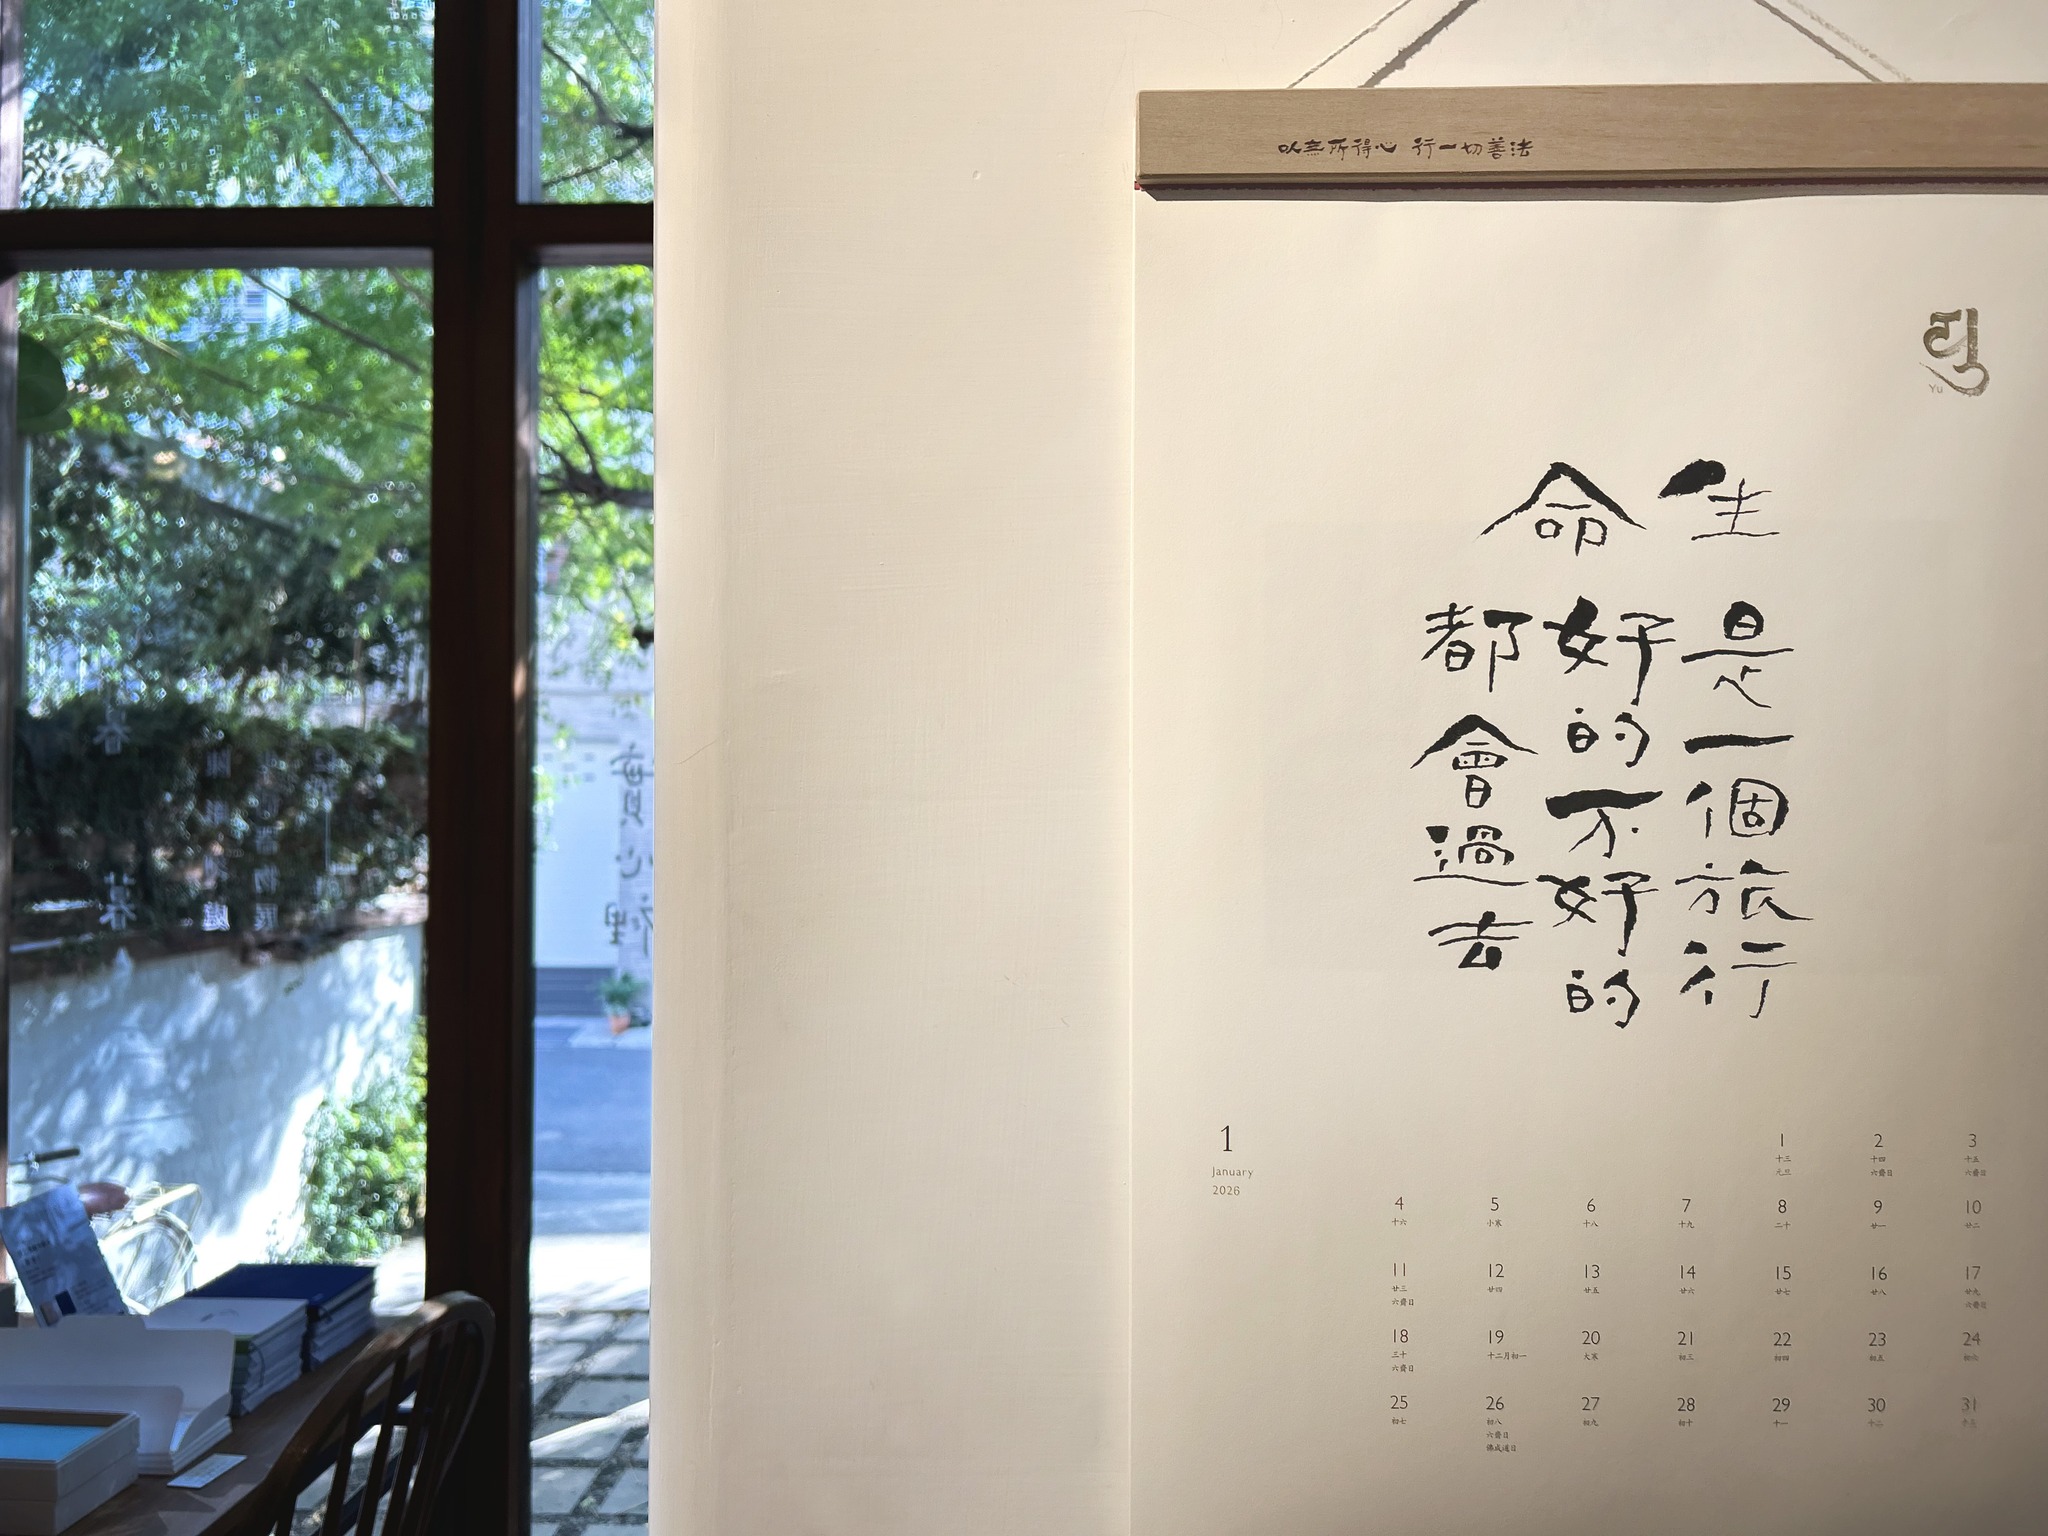 以無所得心 行一切善法
Yu
生命
是一個旅行
好的不好的
都會過去
1
January
2026
1 2 3
十三 十四 十五
元旦 六齋日 六齋日
4 5 6 7 8 9 10
十六 小寒 十八 十九 二十 廿一 廿二
11 12 13 14 15 16 17
廿三 廿四 廿五 廿六 廿七 廿八 廿九
六齋日 六齋日
18 19 20 21 22 23 24
三十 十二月初一 大寒 初三 初四 初五 初六
六齋日
25 26 27 28 29 30 31
初七 初八 初九 初十 十一 十二 十三
六齋日
佛成道日